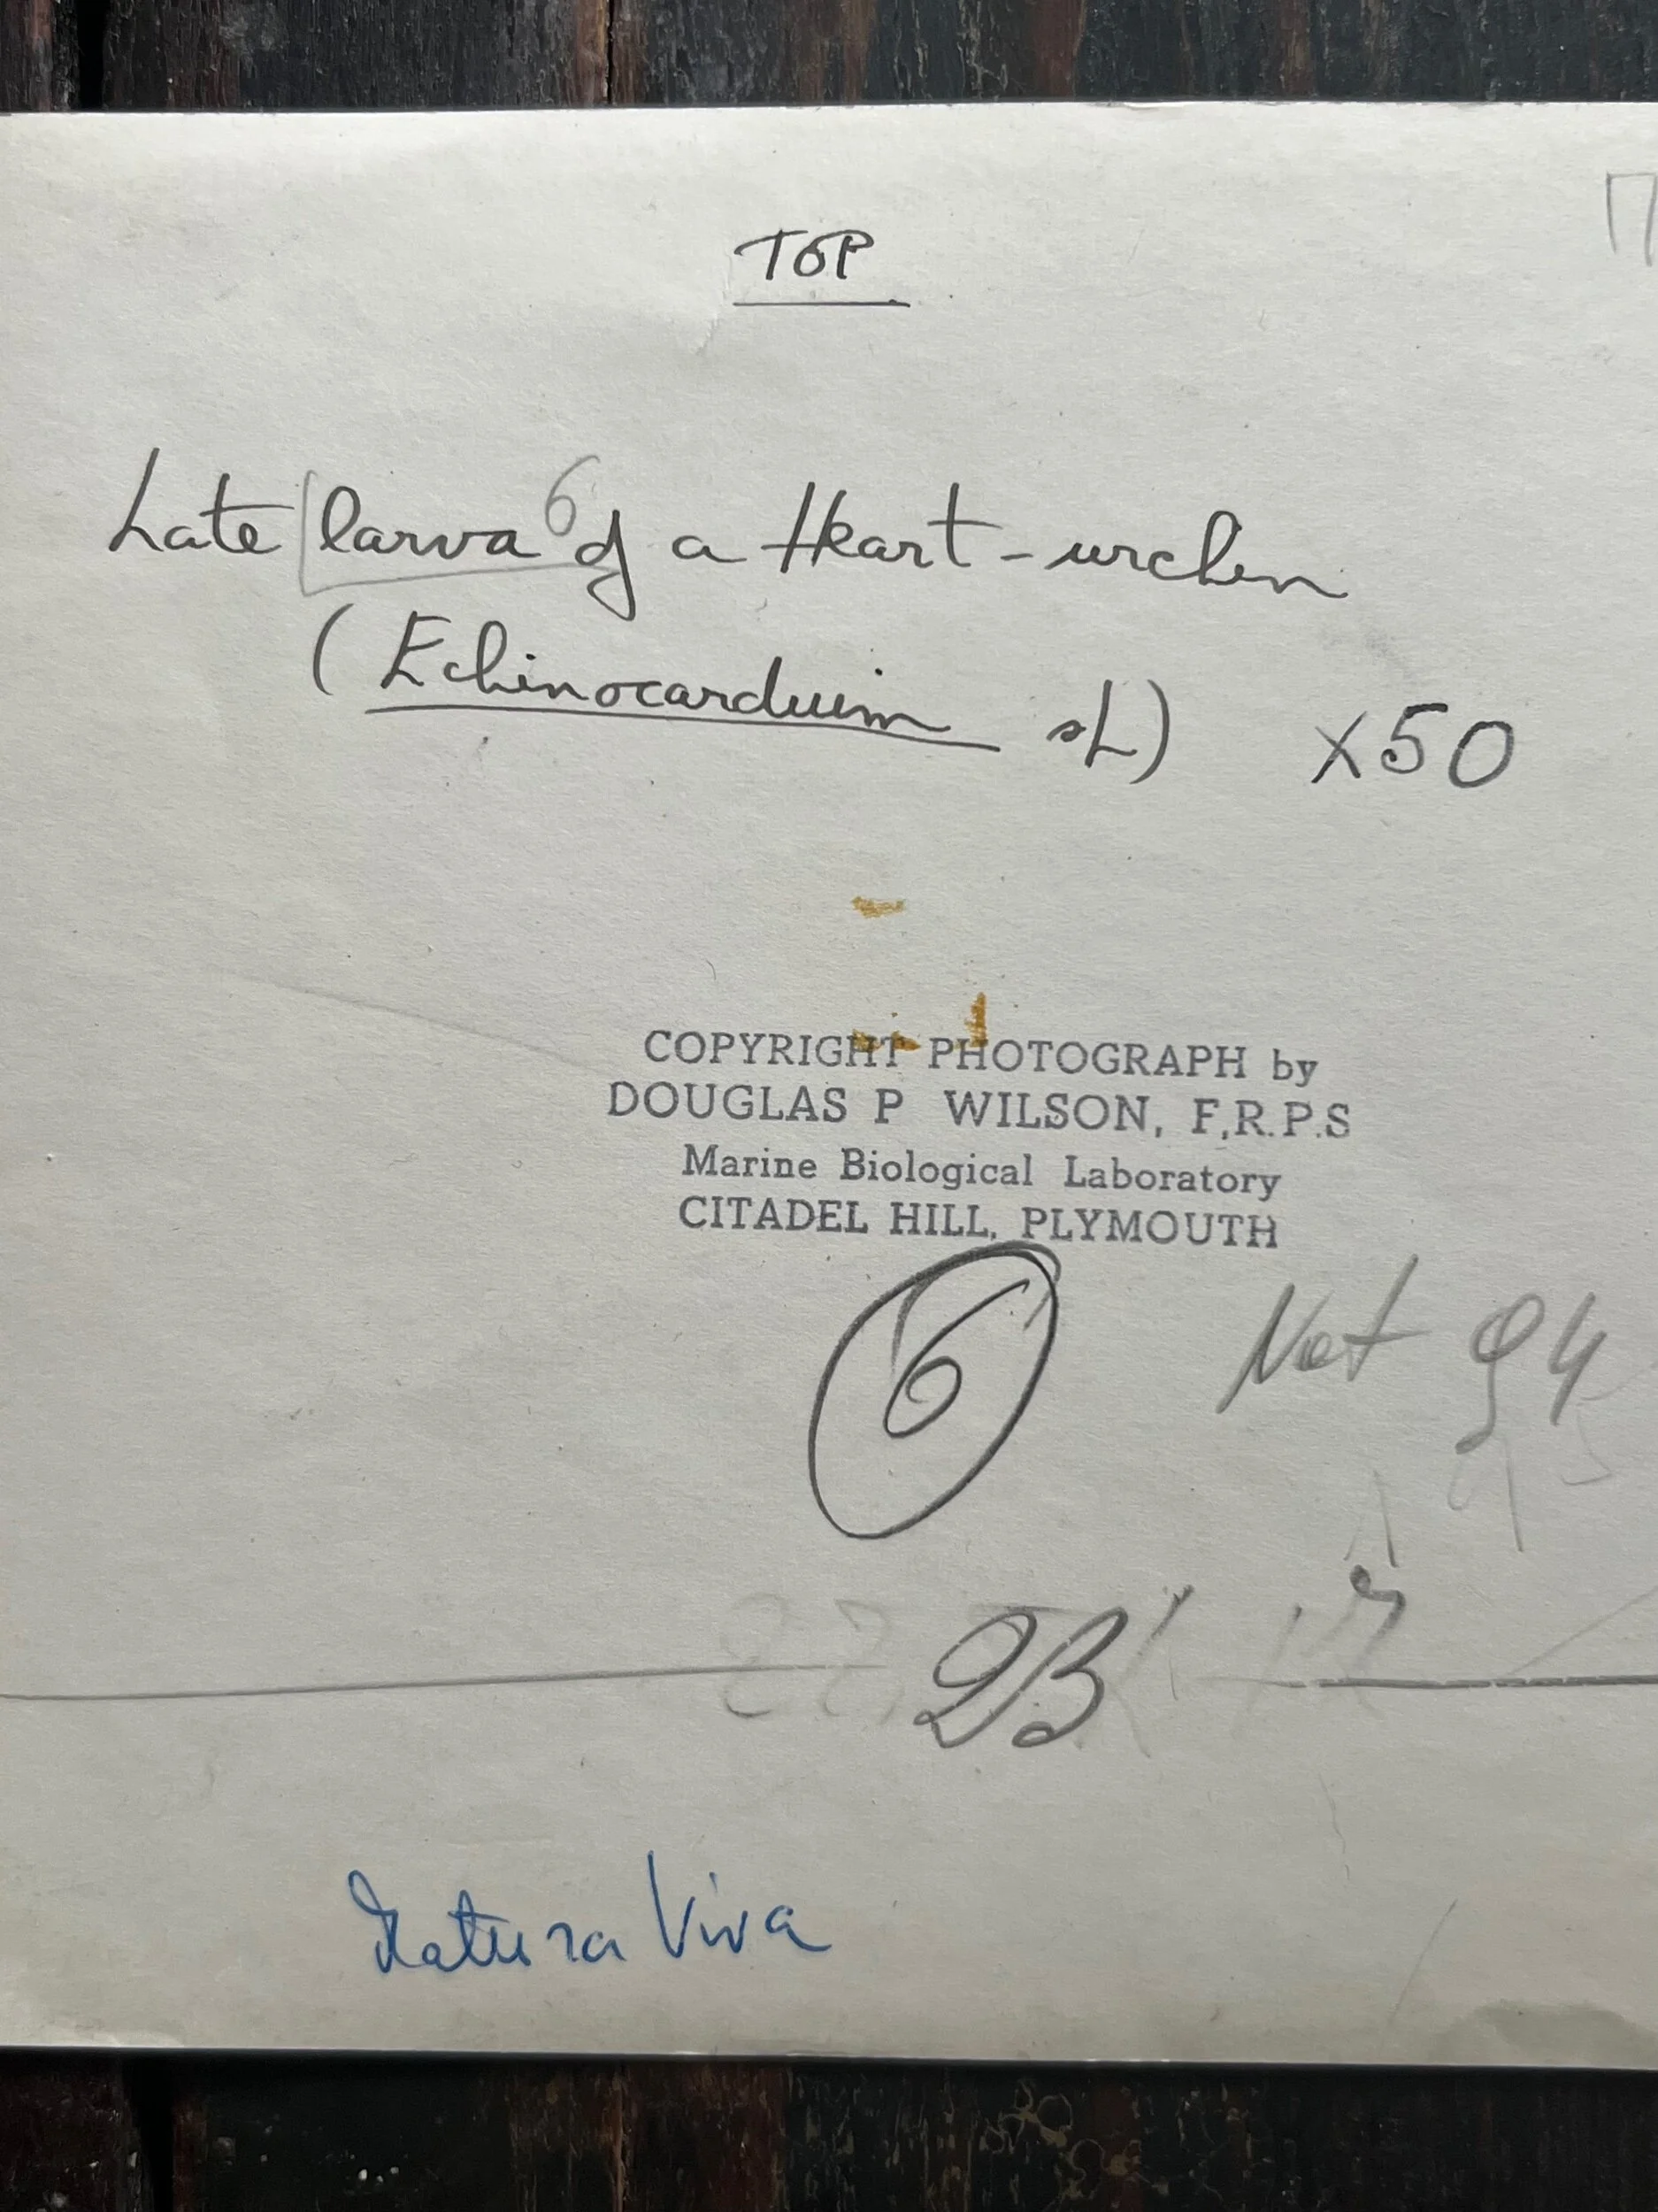 TOP
Late larva 6 of a Heart-urchin
(Echinocardium sp.) x50
COPYRIGHT PHOTOGRAPH by
DOUGLAS P WILSON, F.R.P.S
Marine Biological Laboratory
CITADEL HILL, PLYMOUTH
6
Nat 94
Natura Viva